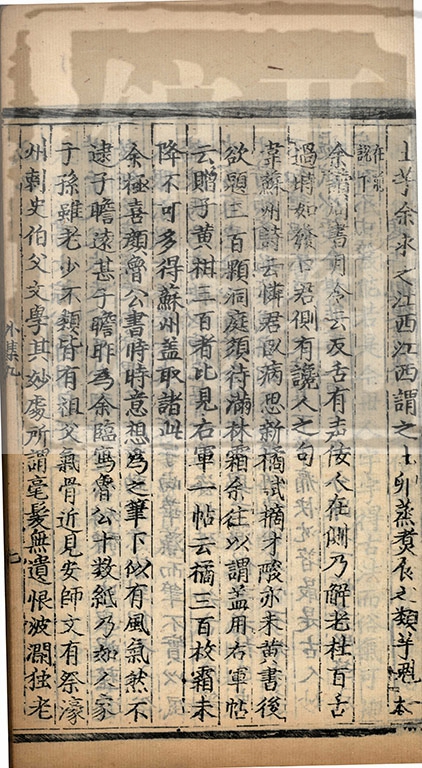 土芋余求之江西江西謂之土卵蒸煮食之類芋魁本
在前
說下
余讀周書月令云反舌有声佞人在側乃解老杜百舌
過時如發口君側有讒人之句
韋蘇州詩云憐君臥病思新橘試摘才酸亦未黄書後
欲題三百顆洞庭須待滿林霜余徃以謂蓋用右軍帖
云贈子黄柑三百者比見右軍一帖云橘三百枚霜未
降不可多得蘇州蓋取諸此
余極喜顔魯公書時時意想為之筆下似有風氣然不
逮子瞻遠甚子瞻昨為余臨寫魯公十數紙乃如人家
子孫雖老少不類皆有祖父氣骨近見安師文有祭濠
州刺史伯父文學其妙處所謂毫髮無遺恨波瀾獨老
外集九
七